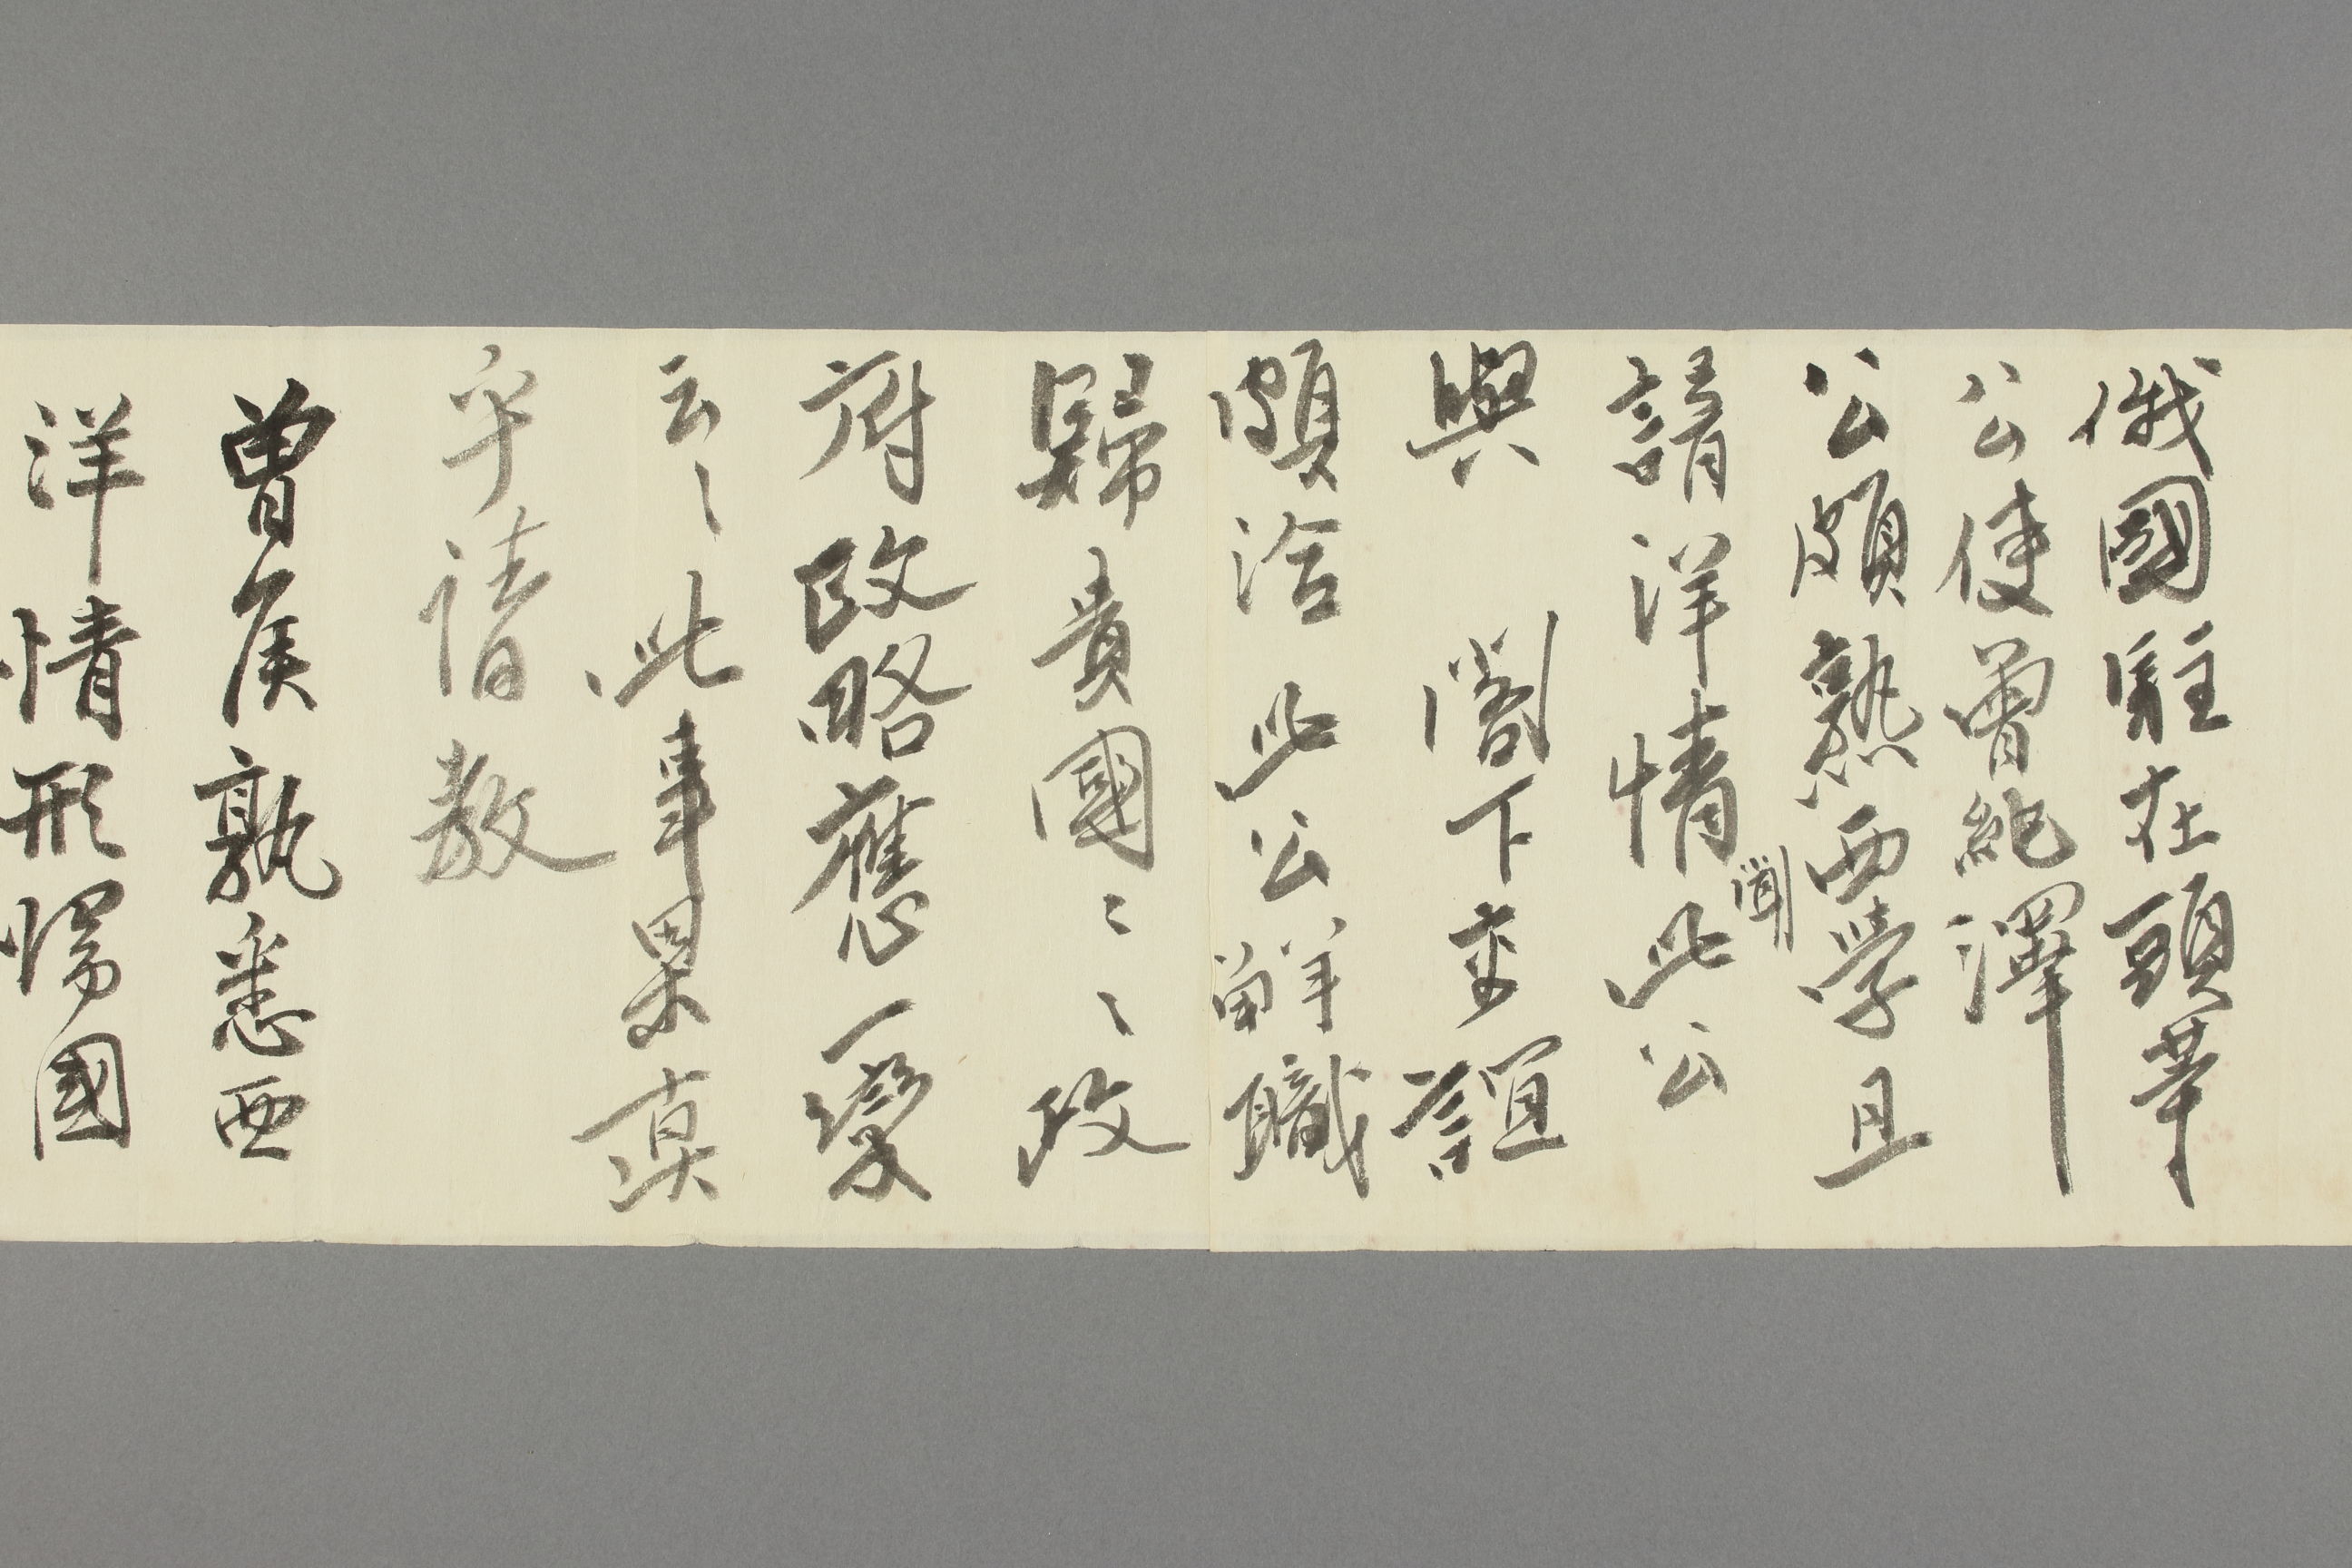 俄國駐在頭等
公使曾紀澤
公頗熟西學且
諳洋情聞此公
與　閣下交誼
頗洽此公解職
歸貴國〻〻政
府政略應一變
云〻此事果真
乎請教
曾侯熟悉西
洋情形惕國